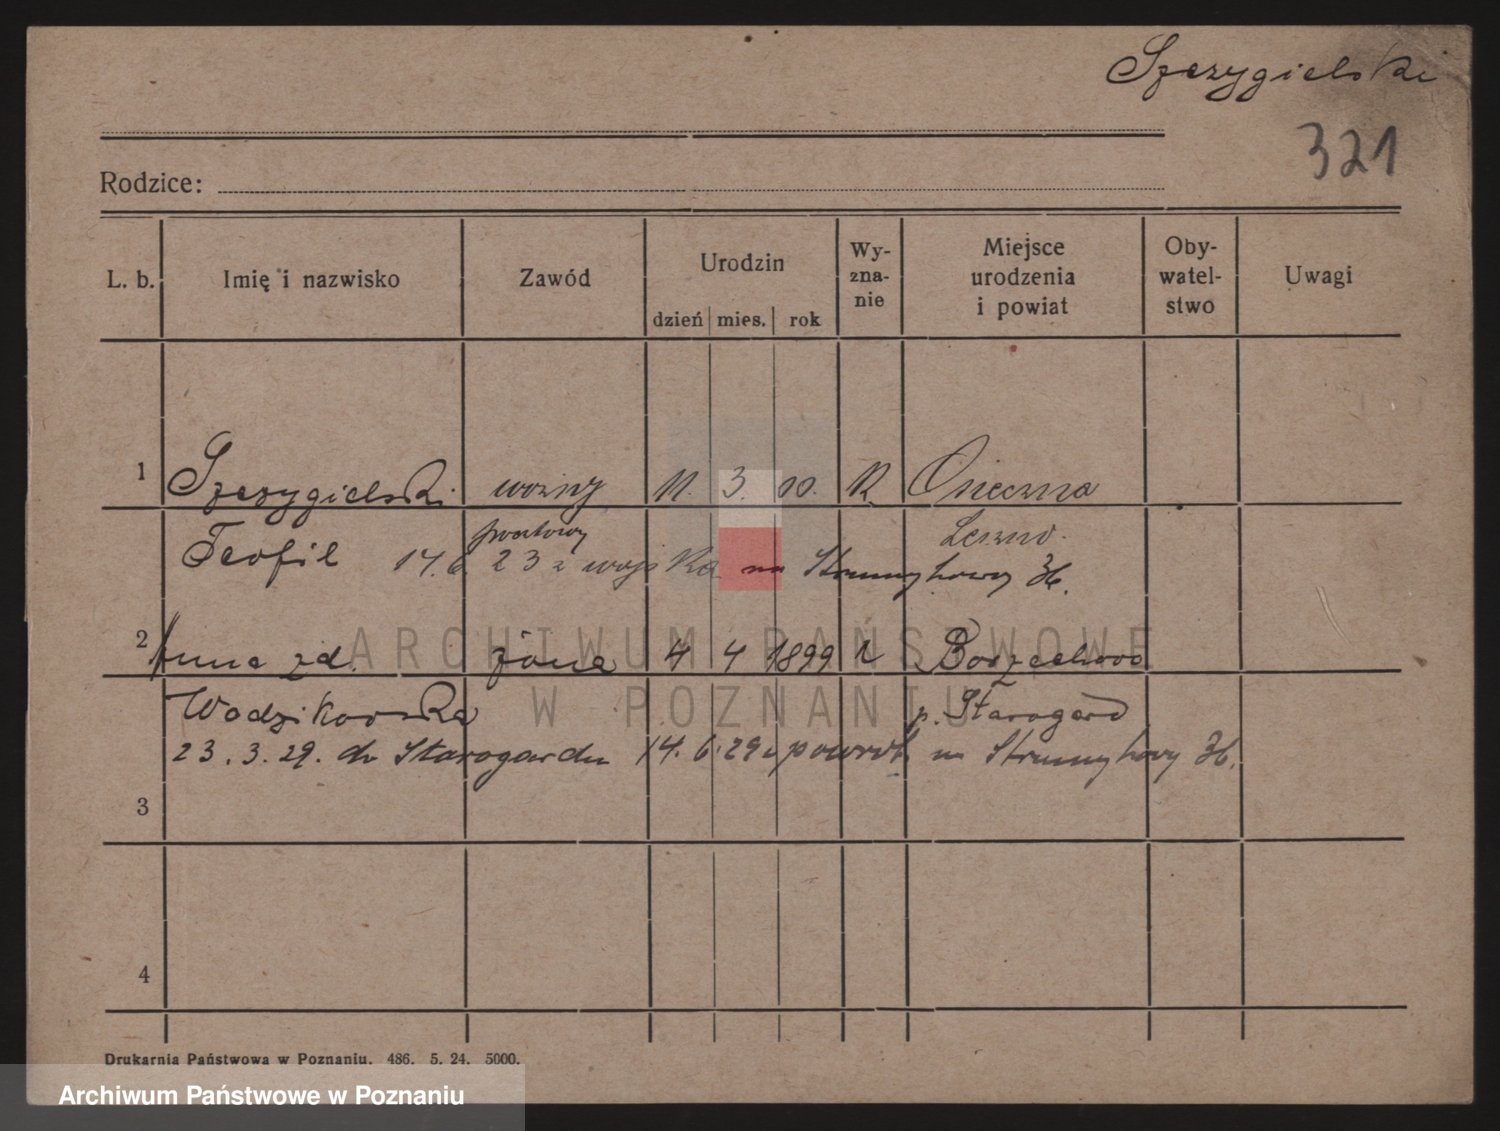 Szczygielski
321
Rodzice:
L. b. Imię i nazwisko Zawód Urodzin dzień mies. rok Wy-zna-nie Miejsce urodzenia i powiat Oby-watel-stwo Uwagi
1 Szczygielski woźny 11. 3. 00. R Osieczna
pocztowy Leszno.
Teofil 14.6. 23 z wojska na Strumykowy 36.
2 Anna zd. żona 4 4 1899 r Borzechowo
Wodzikowska p. Starogard
23.3.29. do Starogardu 14.6.29 z powrot. na Strumykowy 36.
3
4
Drukarnia Państwowa w Poznaniu. 486. 5. 24. 5000.
ARCHIWUM PAŃSTWOWE
W POZNANIU
Archiwum Państwowe w Poznaniu